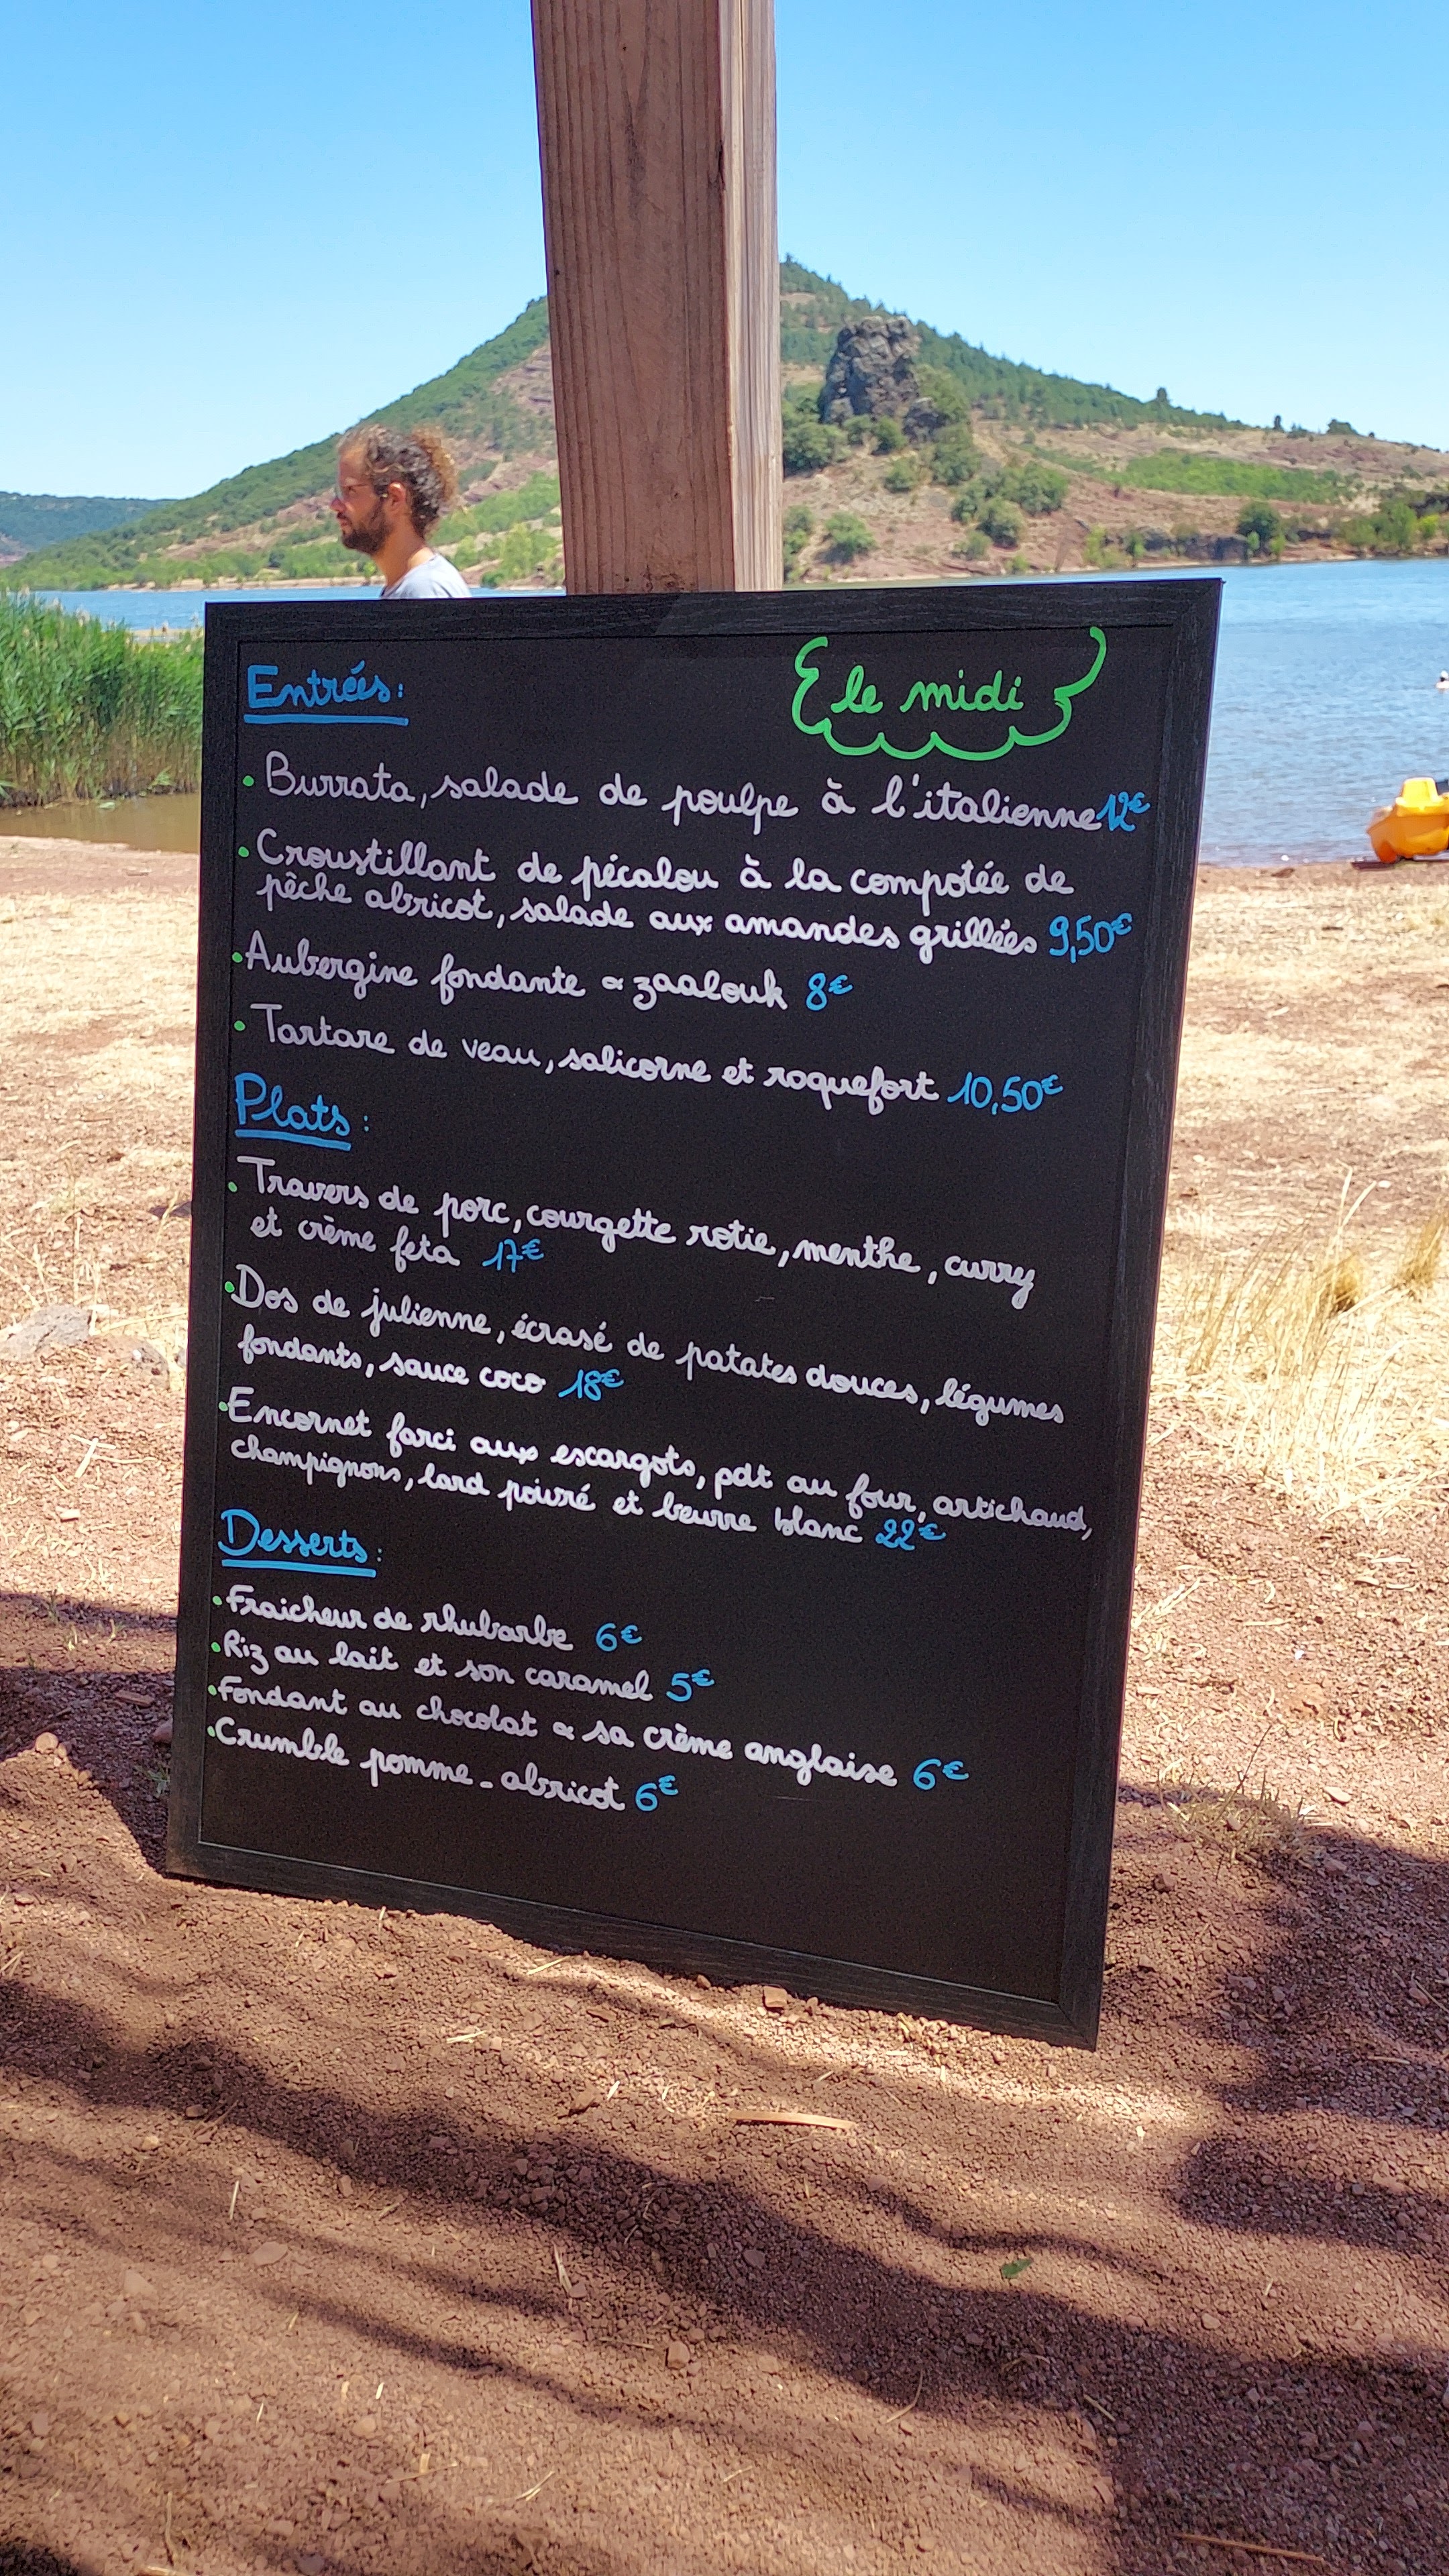 Entrées:
le midi
• Burrata, salade de poulpe à l'italienne 12€
• Croustillant de pécalou à la compotée de
pêche abricot, salade aux amandes grillées 9,50€
• Aubergine fondante & zaalouk 8€
• Tartare de veau, salicorne et roquefort 10,50€
Plats:
• Travers de porc, courgette rotie, menthe, curry
et crème feta 17€
• Dos de julienne, écrasé de patates douces, légumes
fondants, sauce coco 18€
• Encornet farci aux escargots, pdt au four, artichaud,
champignons, lard poivré et beurre blanc 22€
Desserts:
• Fraicheur de rhubarbe 6€
• Riz au lait et son caramel 5€
• Fondant au chocolat & sa crème anglaise 6€
• Crumble pomme - abricot 6€